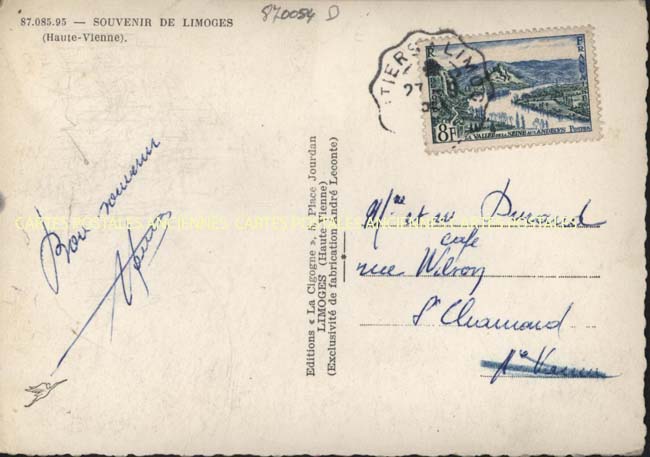 87.085.95 — SOUVENIR DE LIMOGES
(Haute-Vienne).
870084 D
TIERS LIMOG
27
RF
FRANCE
8F
LA VALLÉE DE LA SEINE AUX ANDELYS POSTES
Bon souvenir
CARTES POSTALES ANCIENNES CARTES POSTALES ANCIENNES CARTES POSTALES
Editions « La Cigogne », 5, Place Jourdan
LIMOGES (Haute-Vienne)
(Exclusivité de fabrication André Leconte)
Mme et Mr Durand
café
rue Wilson
St Chamond